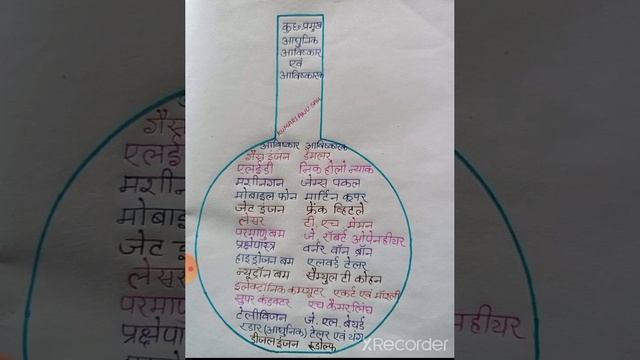 कुछ प्रमुख
आधुनिक
आविष्कार
एवं
आविष्कारक
KUMARI ANJU SAH
आविष्कार आविष्कारक
गैस इंजन डैमलर
एलईडी निक होलोन्याक
मशीनगन जेम्स पकल
मोबाइल फोन मार्टिन कूपर
जेट इंजन फ्रैंक व्हिटले
लेसर टी. एच. मेमन
परमाणु बम जे. रॉबर्ट ओपेनहीयर
प्रक्षेपास्त्र वर्नर वॉन ब्रॉन
हाइड्रोजन बम एलवर्ड टेलर
न्यूट्रॉन बम सैम्युल टी कोहन
इलेक्ट्रॉनिक कम्प्यूटर एकर्ट एवं मॉश्ली
सुपर कंडक्टर एच कैमरलिंघ
टेलीविजन जे. एल. बेयर्ड
रडार (आधुनिक) टेलर एवं यंग
डीजल इंजन रूडोल्फ
XRecorder
गैस
एलई
मशीन
मोबा
जेट इ
लेसर
परमा
प्रक्षेपा
हीयर